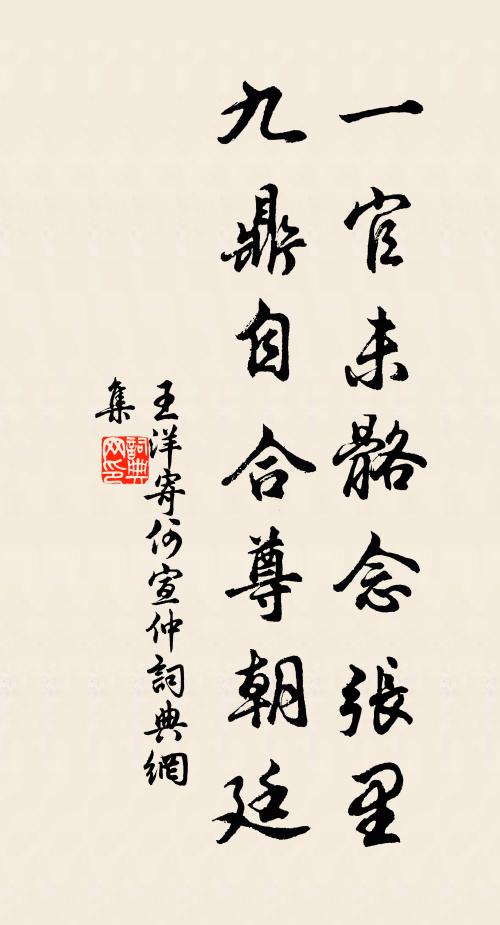 一官未骼念張里
九鼎自合尊朝廷
王洋寄何宣仲詞典網
集
詞典
网印